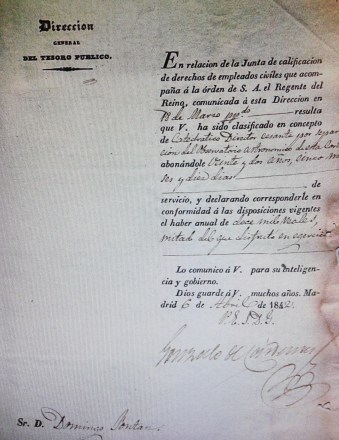 Direccion
GENERAL
DEL TESORO PUBLICO.
En relacion de la Junta de calificacion
de derechos de empleados civiles que acom-
paña á la órden de S. A. el Regente del
Reino, comunicada á esta Direccion en
18 de Marzo ppdo resulta
que V. ha sido clasificado en concepto
de Catedratico Director cesante por separa
cion del Observatorio Astronomico de esta Corte
abonándole Veinte y dos años, cinco me
ses y diez dias
de
servicio, y declarando corresponderle en
conformidad á las disposiciones vigentes
el haber anual de doce mil reales,
mitad del que disfrutó en
Lo comunico á V. para su inteligen-
cia y gobierno.
Dios guarde á V. muchos años. Ma-
drid 6 de Abril de 1842.
Gonzalo de Cardenas
Sr. D. Domingo Fontan